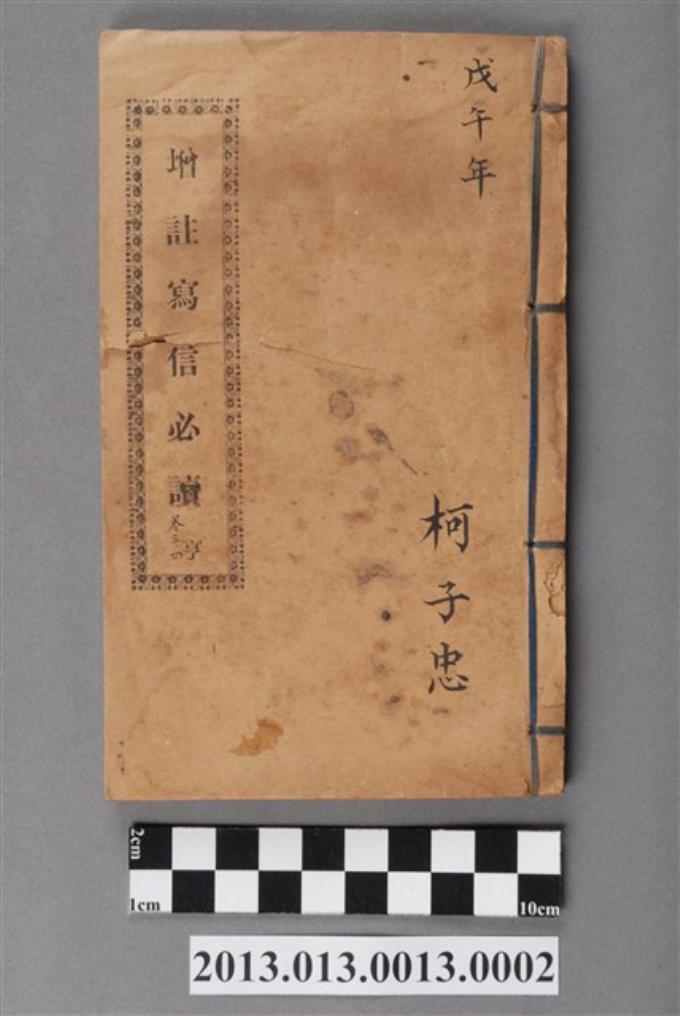 戊午年
柯子忠
增註寫信必讀
卷三四 亨
2cm
1cm
10cm
2013.013.0013.0002